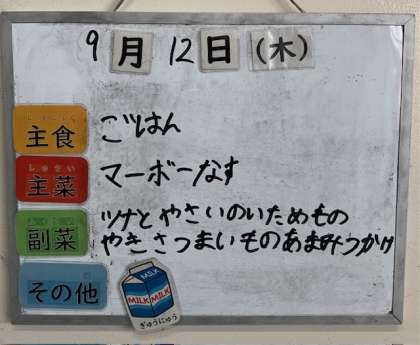 9月12日(木)
主食 ごはん
しゅさい
主菜 マーボーなす
副菜 ツナとやさいのいためもの
やきさつまいものあまみつかけ
その他
MILK
MILK MILK
ぎゅうにゅう